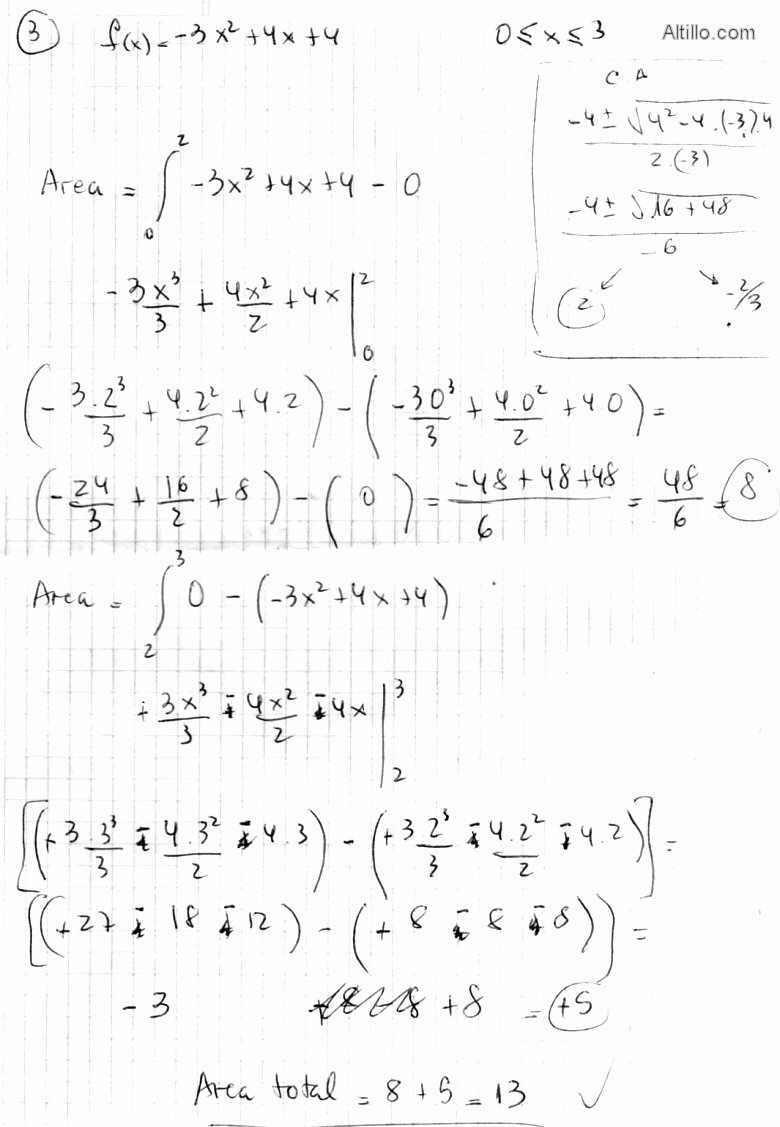 ③ f(x) = -3x² + 4x + 4 0 ≤ x ≤ 3 Altillo.com
C A
(-4 ± √(4² - 4.(-3).4)) / (2.(-3))
Area = ∫₀² -3x² + 4x + 4 - 0
(-4 ± √(16 + 48)) / -6
2 -2/3
-3x³/3 + 4x²/2 + 4x |₀²
(-3.2³/3 + 4.2²/2 + 4.2) - (-30³/3 + 4.0²/2 + 4 0) =
(-24/3 + 16/2 + 8) - (0) = (-48 + 48 + 48)/6 = 48/6 = 8
Area = ∫₂³ 0 - (-3x² + 4x + 4)
+3x³/3 - 4x²/2 - 4x |₂³
[(+3.3³/3 - 4.3²/2 - 4.3) - (+3.2³/3 - 4.2²/2 - 4.2)] =
[(+27 - 18 - 12) - (+8 - 8 - 8)] =
-3 +8 = +5
Area total = 8 + 5 = 13 ✓